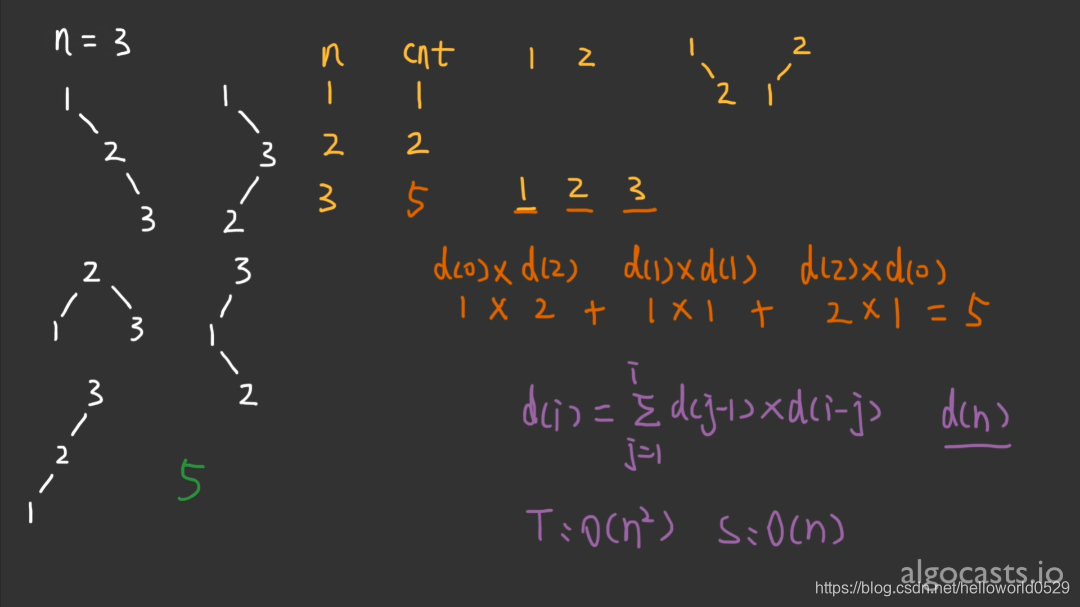 n = 3
1
2
3
1
3
2
2
1 3
3
1
2
3
2
1
5
n cnt
1 1
2 2
3 5
1 2
1
2
2
1
1 2 3
d(0)×d(2) d(1)×d(1) d(2)×d(0)
1 × 2 + 1 × 1 + 2 × 1 = 5
d(i) = Σ_{j=1}^{i} d(j-1)×d(i-j) d(n)
T: O(n²) S: O(n)
algocasts.io
https://blog.csdn.net/helloworld0529